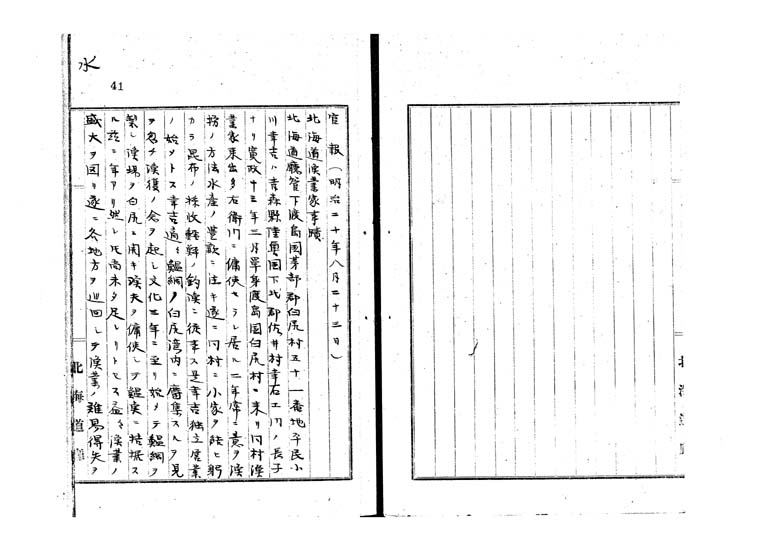 水
41
官報(明治二十年八月二十三日)
北海道漁業家事蹟
北海道廳管下渡島國茅部郡臼尻村五十一番地平民小
川幸吉ハ青森縣陸奥國下北郡佐井村幸右エ門ノ長子
ナリ寛政十三年二月單身渡島國臼尻村ニ来リ同村漁
業家東出多右衛門ニ傭使セラレ居ル二年席ニ意ヲ漁
撈ノ方法水産ノ豊歉ニ注キ遂ニ同村ニ小家ヲ陸ヒ躬
カラ昆布ノ採收鱈鰈ノ釣漁ニ従事ス是幸吉獨立居業
ノ始メトス幸吉適々鰮網ノ臼尻湾内ニ麕集スルヲ見
ヲ忽チ漁獲ノ念ヲ起シ文化三年ニ至リ始メテ鰮網ヲ
製シ漁場ヲ臼尻ニ開キ漁夫ヲ傭使シテ鰮漁ニ拮据ス
ル茲ニ年アリ然レ氏尚未タ足レリトセス益々漁業ノ
盛大ヲ図リ遂ニ各地方ヲ巡回シテ漁業ノ難易得失ヲ
北海道廳